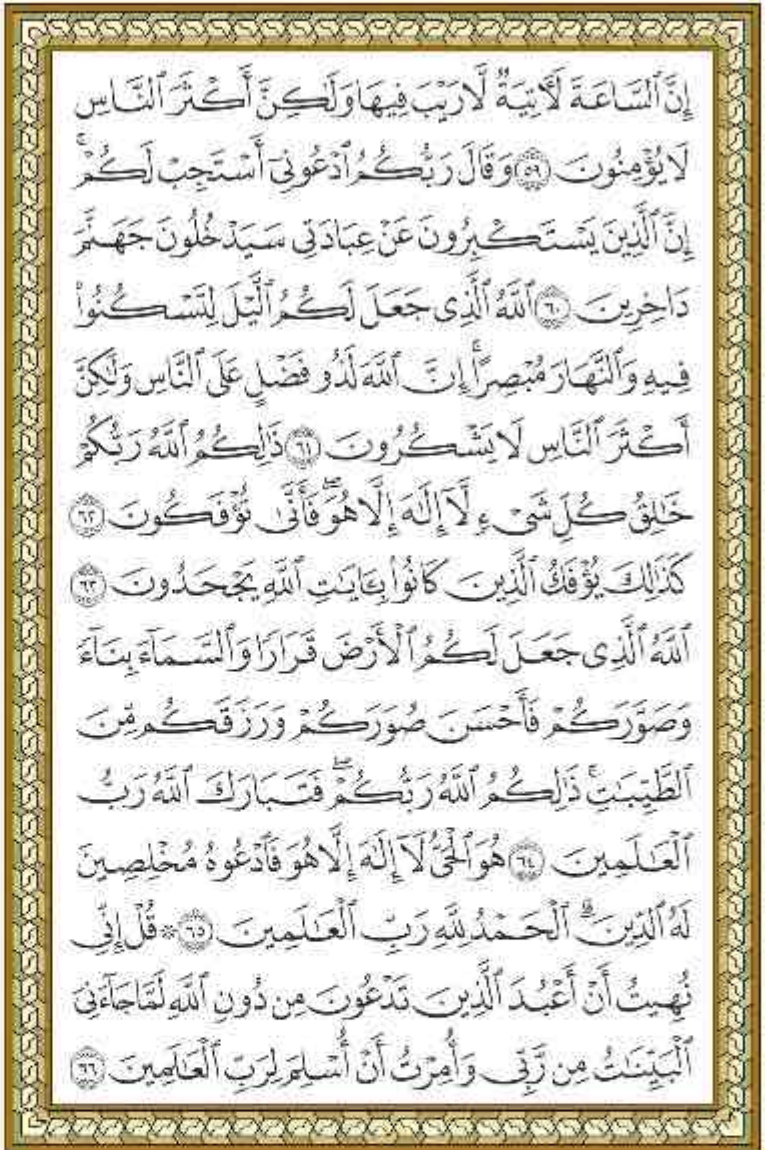 إِنَّ ٱلسَّاعَةَ لَـَٔاتِيَةٌ لَّا رَيْبَ فِيهَا وَلَـٰكِنَّ أَكْثَرَ ٱلنَّاسِ
لَا يُؤْمِنُونَ ﴿٥٩﴾ وَقَالَ رَبُّكُمُ ٱدْعُونِىٓ أَسْتَجِبْ لَكُمْ ۚ
إِنَّ ٱلَّذِينَ يَسْتَكْبِرُونَ عَنْ عِبَادَتِى سَيَدْخُلُونَ جَهَنَّمَ
دَاخِرِينَ ﴿٦٠﴾ ٱللَّهُ ٱلَّذِى جَعَلَ لَكُمُ ٱلَّيْلَ لِتَسْكُنُوا۟
فِيهِ وَٱلنَّهَارَ مُبْصِرًا ۚ إِنَّ ٱللَّهَ لَذُو فَضْلٍ عَلَى ٱلنَّاسِ وَلَـٰكِنَّ
أَكْثَرَ ٱلنَّاسِ لَا يَشْكُرُونَ ﴿٦١﴾ ذَٰلِكُمُ ٱللَّهُ رَبُّكُمْ
خَـٰلِقُ كُلِّ شَىْءٍ لَّآ إِلَـٰهَ إِلَّا هُوَ ۖ فَأَنَّىٰ تُؤْفَكُونَ ﴿٦٢﴾
كَذَٰلِكَ يُؤْفَكُ ٱلَّذِينَ كَانُوا۟ بِـَٔايَـٰتِ ٱللَّهِ يَجْحَدُونَ ﴿٦٣﴾
ٱللَّهُ ٱلَّذِى جَعَلَ لَكُمُ ٱلْأَرْضَ قَرَارًا وَٱلسَّمَآءَ بِنَآءً
وَصَوَّرَكُمْ فَأَحْسَنَ صُوَرَكُمْ وَرَزَقَكُم مِّنَ
ٱلطَّيِّبَـٰتِ ۚ ذَٰلِكُمُ ٱللَّهُ رَبُّكُمْ ۖ فَتَبَارَكَ ٱللَّهُ رَبُّ
ٱلْعَـٰلَمِينَ ﴿٦٤﴾ هُوَ ٱلْحَىُّ لَآ إِلَـٰهَ إِلَّا هُوَ فَٱدْعُوهُ مُخْلِصِينَ
لَهُ ٱلدِّينَ ۗ ٱلْحَمْدُ لِلَّهِ رَبِّ ٱلْعَـٰلَمِينَ ﴿٦٥﴾ ۞ قُلْ إِنِّى
نُهِيتُ أَنْ أَعْبُدَ ٱلَّذِينَ تَدْعُونَ مِن دُونِ ٱللَّهِ لَمَّا جَآءَنِىَ
ٱلْبَيِّنَـٰتُ مِن رَّبِّى وَأُمِرْتُ أَنْ أُسْلِمَ لِرَبِّ ٱلْعَـٰلَمِينَ ﴿٦٦﴾